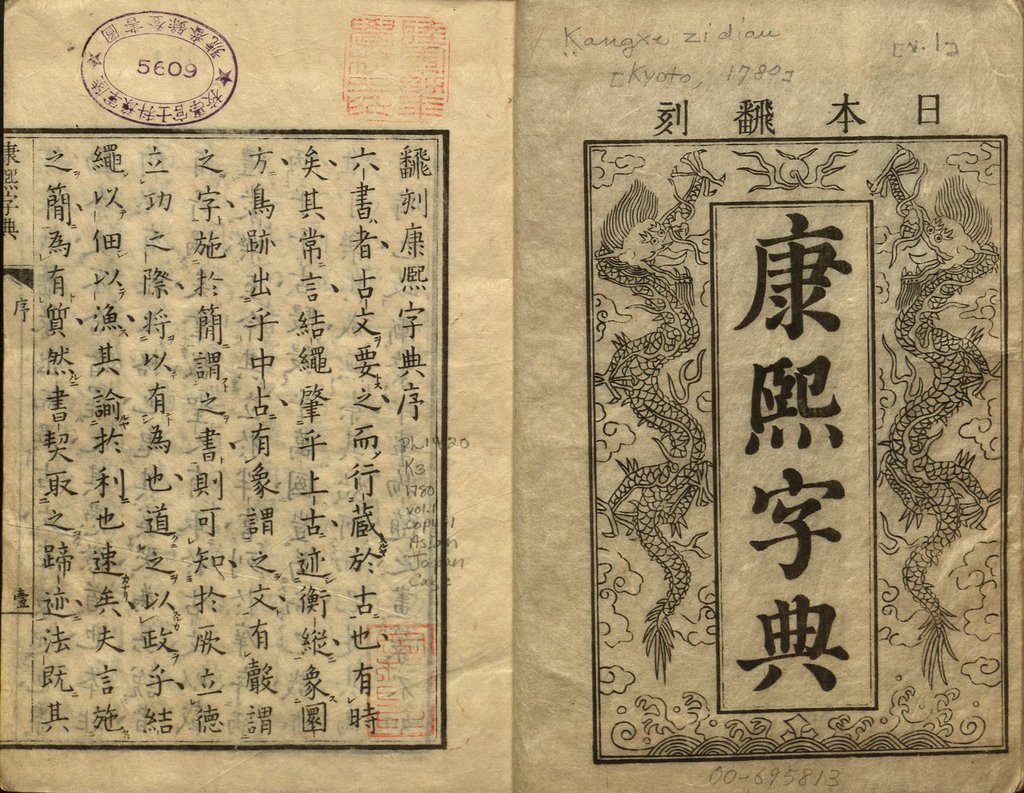 Kangxi zidian
[v.1]
[Kyoto, 1780]
日本飜刻
康熙字典
00-695813
5609
飜刻康熙字典序
六書者古文要之而行藏於古也有時
矣其常言結繩肇乎上古迹衡縱象圜
方鳥跡出乎中占有象謂之文有聲謂
之字施於簡謂之書則可知於厥立德
立功之際將以有為也道之以政乎結
繩以佃以漁其諭於利也速矣夫言施
之簡為有質然書契取之蹄迹法既其
PL1420
K3
1780
vol.1
copy 1
Asian
Japan
Cage
康熙字典
序
壹